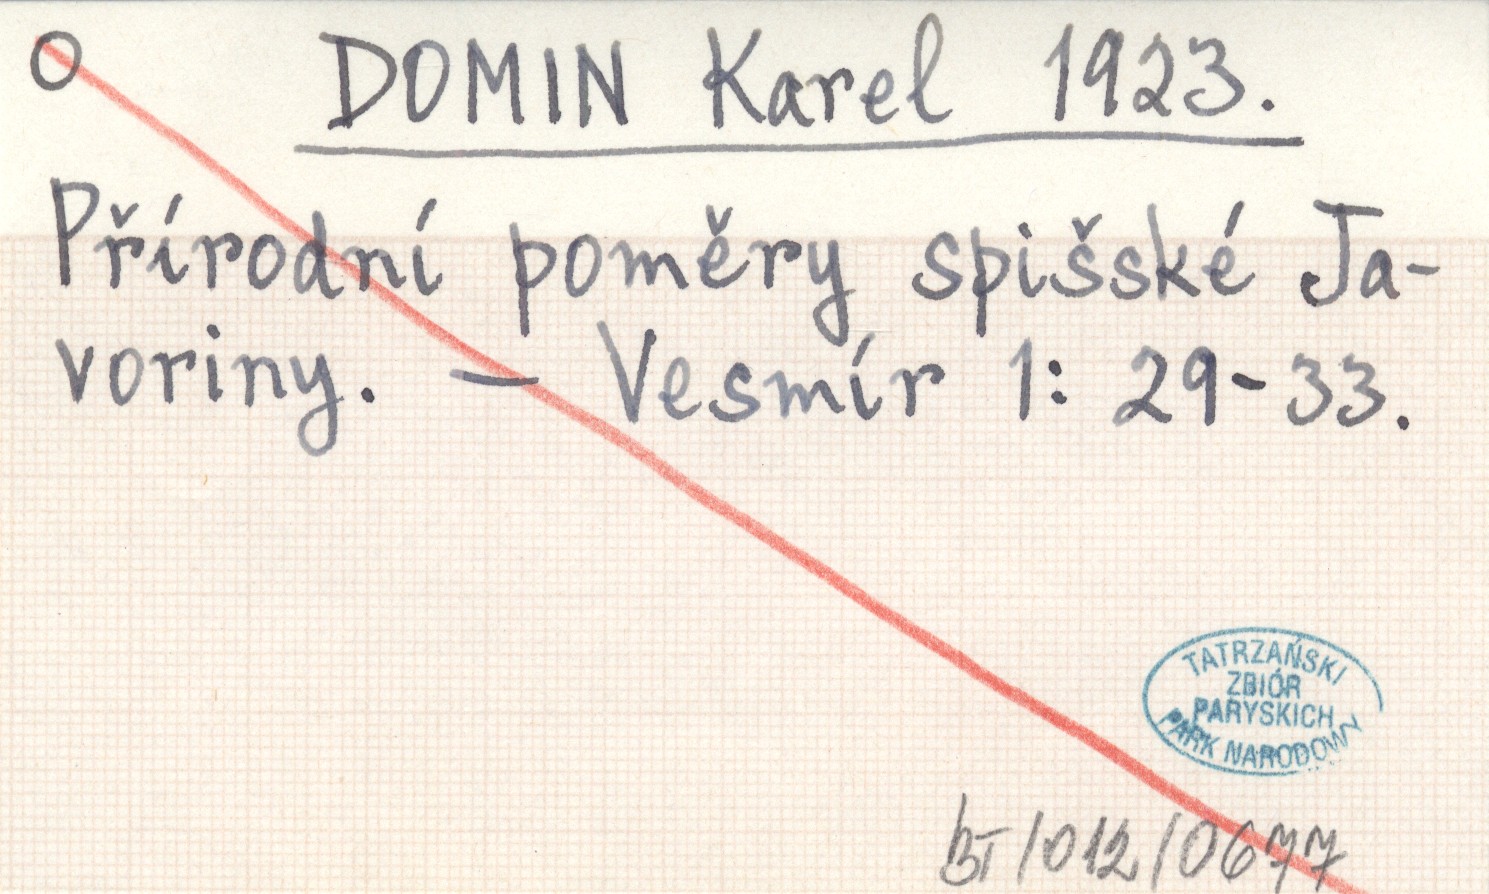 O DOMIN Karel 1923.
Přírodní poměry spišské Ja-
voriny. — Vesmír 1: 29-33.
TATRZAŃSKI
ZBIÓR
PARYSKICH
PARK NARODOWY
BT/012/0677